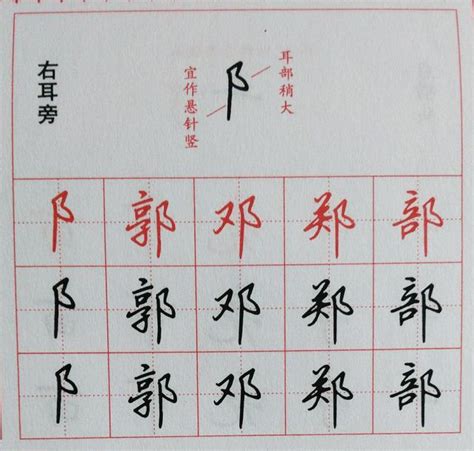 右耳旁
宜作悬针竖
阝
耳部稍大
阝 郭 邓 郑 部
阝 郭 邓 郑 部
阝 郭 邓 郑 部